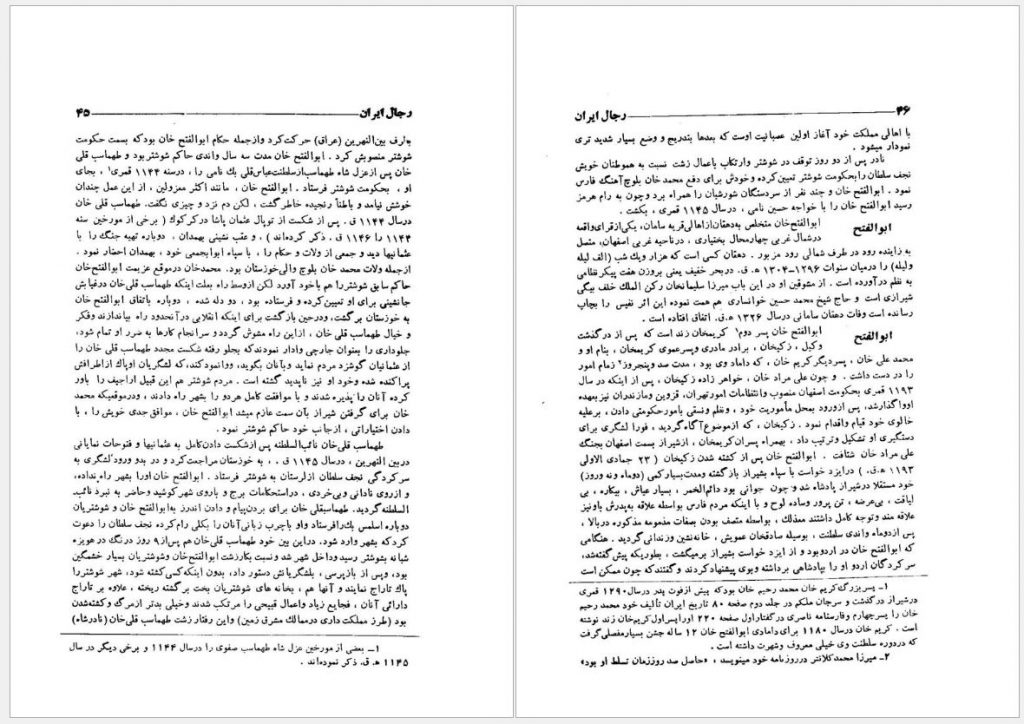 رجال ایران ۴۵
بطرف بین‌النهرین (عراق) حرکت کرد و ازجمله حکام ابوالفتح خان بود که بسمت حکومت
شوشتر منصوبش کرد . ابوالفتح خان مدت سه سال واندی حاکم شوشتر بود و طهماسب قلی
خان پس ازعزل شاه طهماسب ازسلطنت عباس‌قلی بك نامی را ، درسنه ۱۱۴۴ قمری۱ ، بجای
او ، بحکومت شوشتر فرستاد . ابوالفتح خان ، مانند اکثر معزولین ، از این عمل چندان
خوشش نیامد و باطناً رنجیده خاطر گشت ، لکن دم نزد و چیزی نگفت. طهماسب قلی خان
درسال ۱۱۴۴ ق . پس از شکست از توپال عثمان پاشا در کرکوك ( برخی از مورخین سنه
۱۱۴۴ را ۱۱۴۶ ق . ذکر کرده‌اند ) ، و عقب نشینی بهمدان ، دوباره تهیه جنگ را با
عثمانیها دید و جمعی از ولات و حکام را ، با سپاه ابوابجمعی خود ، بهمدان احضار نمود .
ازجمله ولات محمد خان بلوچ والی خوزستان بود. محمدخان درموقع عزیمت ابوالفتح‌خان
حاکم سابق شوشتررا هم باخود آورد لکن ازوسط راه بعلت اینکه طهماسب قلی‌خان درغیابش
جانشینی برای او تعیین کرده و فرستاده بود ، دو دله شده ، دوباره باتفاق ابوالفتح خان
به خوزستان برگشت، ودرحین بازگشت برای اینکه انقلابی درآنحدود راه بیاندازند وفکر
و خیال طهماسب قلی خان ، ازاین راه مشوش گردد و سرانجام کارها به ضرر او تمام شود،
جلوداری را بعنوان جارچی وادار نمودند که بجلو رفته شکست مجدد طهماسب قلی خان را
از عثمانیان گوشزد مردم نماید وبآنان بگوید، ووانمود کند، که لشگریان اوپاك ازاطرافش
پراکنده شده وخود او نیز ناپدید گشته است . مردم شوشتر هم این قبیل اراجیف را باور
کرده آنان را پذیره شدند و با موافقت کامل هردو را بشهر راه دادند ، ودرموقعیکه محمد
خان برای گرفتن شیراز بآن سمت عازم میشد ابوالفتح خان ، موافق جدی خویش را ، با
دادن اختیاراتی ، ازجانب خود حاکم شوشتر نمود .
طهماسب قلی‌خان نائب‌السلطنه پس ازشکست دادن کامل به عثمانیها و فتوحات نمایانی
دربین النهرین ، درسال ۱۱۴۵ ق . ، به خوزستان مراجعت کرد و در بدو ورود لشگری به
سرکردگی نجف سلطان ازلرستان به شوشتر فرستاد . ابوالفتح خان اورا بشهر راه نداده،
و ازروی نادانی وبی‌خردی ، دراستحکامات برج و باروی شهر کوشید وحاضر به نبرد نائب‌
السلطنه گردید. طهماسبقلی خان برای بردن پیام و دادن اندرز به ابوالفتح خان و شوشتریان
دوباره اسلمس بك‌را فرستاد واو باچرب زبانی آنان را بکلی رام کرده نجف سلطان را دعوت
کرد که بشهر وارد شود. دراین بین خود طهماسب قلی خان هم پس از ۹ روز درنگ در هویزه
شبانه بشوشتر رسید وداخل شهر شد ونسبت بکارزشت ابوالفتح‌خان وشوشتریان بسیار خشمگین
بود، وپس از بازپرسی ، بلشگریانش دستور داد، بدون اینکه کسی کشته شود، شهر شوشتررا
پاك تاراج نمایند و آنها هم ، بخانه های شوشتریان بخت برگشته ریخته ، علاوه بر تاراج
دارائی آنان ، فجایع زیاد واعمال قبیحی را مرتکب شدند وخیلی بدتر ازمرگ و کشته‌شدن
بود (طرز مملکت داری درممالك مشرق زمین) واین رفتار زشت طهماسب قلی‌خان (نادرشاه)
۱ـ بعضی از مورخین عزل شاه طهماسب صفوی را درسال ۱۱۴۴ و برخی دیگر در سال
۱۱۴۵ ه‍. ق. ذکر نموده‌اند .
۴۶ رجال ایران
با اهالی مملکت خود آغاز اولین عصبانیت اوست که بعدها بتدریج و وضع بسیار شدید تری
نمودار میشود .
نادر پس از دو روز توقف در شوشتر وارتکاب باعمال زشت نسبت به هموطنان خویش
نجف سلطان را بحکومت شوشتر تعیین کرده وخودش برای دفع محمد خان بلوچ آهنگ فارس
نمود . ابوالفتح خان و چند نفر از سردستگان شورشیان را همراه برد وچون به رام هرمز
رسید ابوالفتح خان را با خواجه حسین نامی ، درسال ۱۱۴۵ قمری ، بکشت .
ابوالفتح
ابوالفتح‌خان متخلص به دهقان ازاهالی قریه سامان، یکی ازقرای واقعه
درشمال غربی چهارمحال بختیاری ، درناحیه غربی اصفهان، متصل
به زاینده رود در طرف شمالی رود مزبور . دهقان کسی است که هزار ویك شب (الف لیله
ولیله) را درمیان سنوات ۱۲۹۶-۱۳۰۴ ه‍. ق. دربحر خفیف یعنی بروزن هفت پیکر نظامی
به نظم درآورده است . از مشوقین او در این باب میرزا سلیمانخان رکن الملك خلف بیگی
شیرازی است و حاج شیخ محمد حسین خوانساری هم همت نموده این اثر نفیس را بچاپ
رسانده است وفات دهقان سامانی درسال ۱۳۲۶ ه‍.ق. اتفاق افتاده است .
ابوالفتح
ابوالفتح خان پسر دوم۱ کریمخان زند است که پس از درگذشت
وکیل ، زکیخان ، برادر مادری وپسرعموی کریمخان ، بنام او و
محمد علی خان ، پسر دیگر کریم خان ، که داماد وی بود ، مدت صد وپنجروز۲ زمام امور
را در دست داشت . و چون علی مراد خان ، خواهر زاده زکیخان ، پس از اینکه در سال
۱۱۹۳ قمری بحکومت اصفهان منصوب وانتظامات امورتهران، قزوین ومازندران نیز بعهده
اوواگذارشد، پس ازورود بمحل مأموریت خود ، ونظم ونسقی بامورحکومتی دادن ، برعلیه
خالوی خود قیام واقدام نمود . زکیخان ، که ازموضوع آگاه گردید ، فورا لشگری برای
دستگیری او تشکیل وترتیب داد ، بهمراه پسران کریمخان ، ازشیراز بسمت اصفهان بجنگ
علی مراد خان شتافت . ابوالفتح خان پس از کشته شدن زکیخان ( ۲۳ جمادی الاولی
۱۱۹۳ ه‍.ق.) درایزد خواست با سپاه بشیراز بازگشته ومدت بسیار کمی (دوماه ونه وروز)
خود مستقلا درشیراز پادشاه شد و چون جوانی بود دائم‌الخمر ، بسیار عیاش ، بیکاره ، بی
لیاقت ، بی‌عرضه ، تن پرور وساده لوح و با اینکه مردم فارس بواسطه علاقه به پدرش باو نیز
علاقه مند وتوجه کامل داشتند معذلك ، بواسطه متصف بودن بصفات مذمومه مذکوره دربالا ،
پس ازدوماه واندی سلطنت ، بوسیله صادقخان عمویش ، خانه‌نشین وزندانی گردید. هنگامی
که ابوالفتح خان در اردو بود و از ایزد خواست بشیراز برمیگشت ، بطوریکه پیش گفته‌شد،
سرکردگان اردو او را بپادشاهی برداشته وبوی پیشنهاد کردند وگفتند که چون ممکن است
۱ـ پسر بزرگ کریم خان محمد رحیم خان بود که پیش ازفوت پدر درسال ۱۲۹۰ قمری
درشیراز درگذشت و سرجان ملکم در جلد دوم صفحه ۸۰ تاریخ ایران تألیف خود محمد رحیم
خان را پسرچهارم وفارسنامه ناصری در گفتاراول صفحه ۲۲۰ اوراپسراول کریم‌خان زند نوشته
است . کریم خان درسال ۱۱۸۰ برای دامادی ابوالفتح خان ۱۲ ساله جشن بسیارمفصلی گرفت
که دردوره سلطنت وی خیلی معروف وشهرت داشته است .
۲ـ میرزا محمد کلانتر درروزنامه خود مینویسد ، «حاصل صد روززمان تسلط او بود»